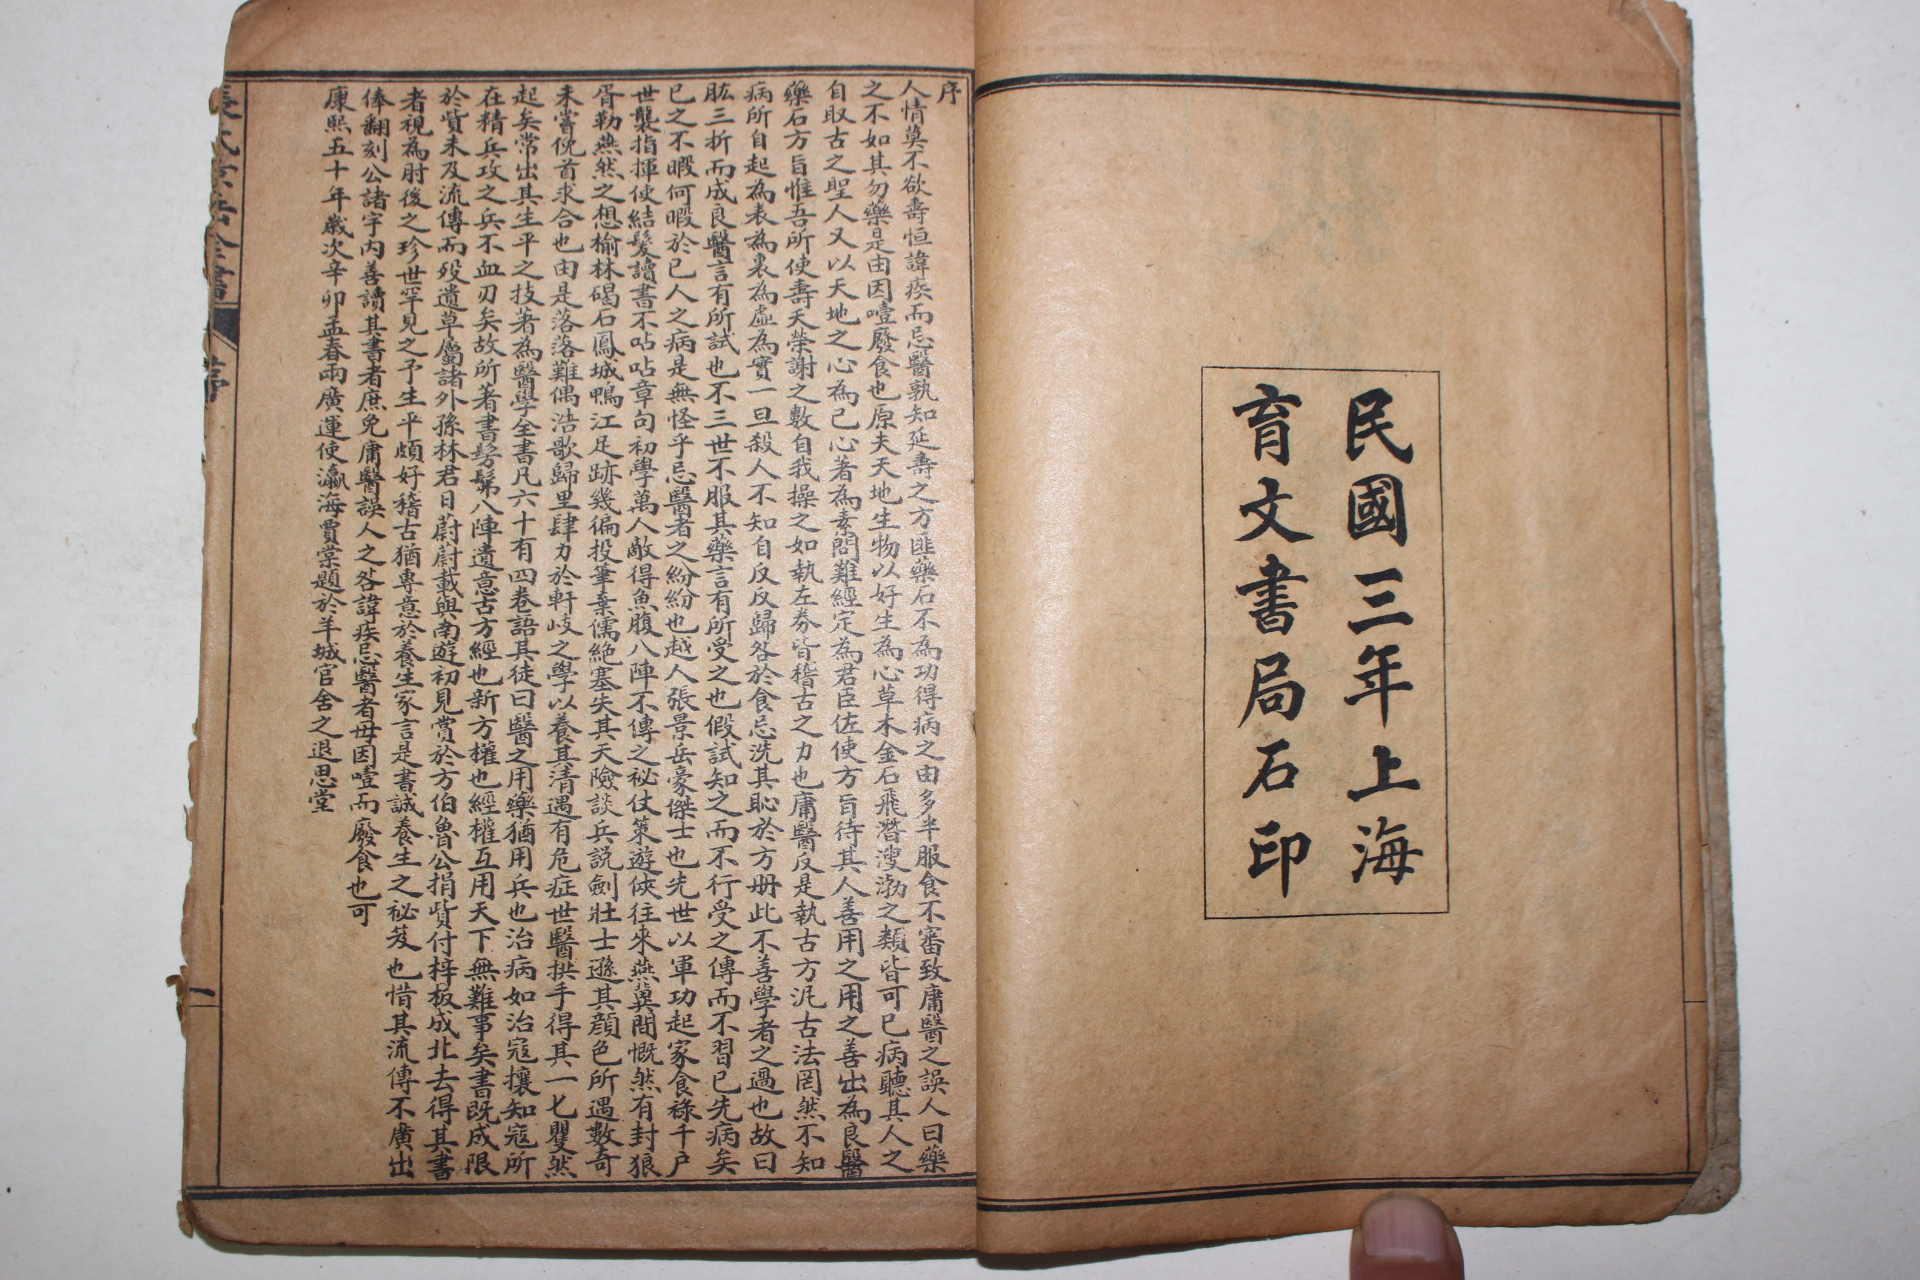 民國三年上海
育文書局石印
序
人情莫不欲壽恒諱疾而忌醫孰知延壽之方匪藥石不為功得病之由多半服食不審致庸醫之誤人曰藥
之不如其勿藥是由因噎廢食也原夫天地生物以好生為心草木金石飛潛溲渤之類皆可已病聽其人之
自取古之聖人又以天地之心為己心著為素問難經定為君臣佐使方旨待其人善用之用之善出為良醫
藥石方旨惟吾所使壽夭榮謝之數自我操之如執左券皆稽古之力也庸醫反是執古方泥古法罔然不知
病所自起為表為裏為虛為實一旦殺人不知自反反歸咎於食忌洗其恥於方冊此不善學者之過也故曰
肱三折而成良醫言有所試也不三世不服其藥言有所受之也假試知之而不行受之傳而不習已先病矣
已之不暇何暇於已人之病是無怪乎忌醫者之紛紛也越人張景岳豪傑士也先世以軍功起家食祿千戶
世襲指揮使結髮讀書不呫呫章句初學萬人敵得魚腹八陣不傳之秘仗策遊俠往來燕冀間慨然有封狼
胥勒燕然之想榆林碣石鳳城鴨江足跡幾徧投筆棄儒絕塞失其天險談兵說劍壯士遜其顏色所遇數奇
未嘗俛首求合也由是落落難偶浩歌歸里肆力於軒岐之學以養其清遇有危症世醫拱手得其一匕矍然
起矣常出其生平之技著為醫學全書凡六十有四卷語其徒曰醫之用藥猶用兵也治病如治寇攘知寇所
在精兵攻之兵不血刃矣故所著書髣髴八陣遺意古方經也新方權也經權互用天下無難事矣書既成限
於貲未及流傳而歿遺草屬諸外孫林君日蔚蔚載與南遊初見賞於方伯魯公捐貲付梓板成北去得其書
者視為肘後之珍世罕見之予生平頗好稽古猶專意於養生家言是書誠養生之祕笈也惜其流傳不廣出
俸翻刻公諸宇內善讀其書者庶免庸醫誤人之咎諱疾忌醫者毋因噎而廢食也可
康熙五十年歲次辛卯孟春兩廣運使瀛海賈棠題於羊城官舍之退思堂
序
一